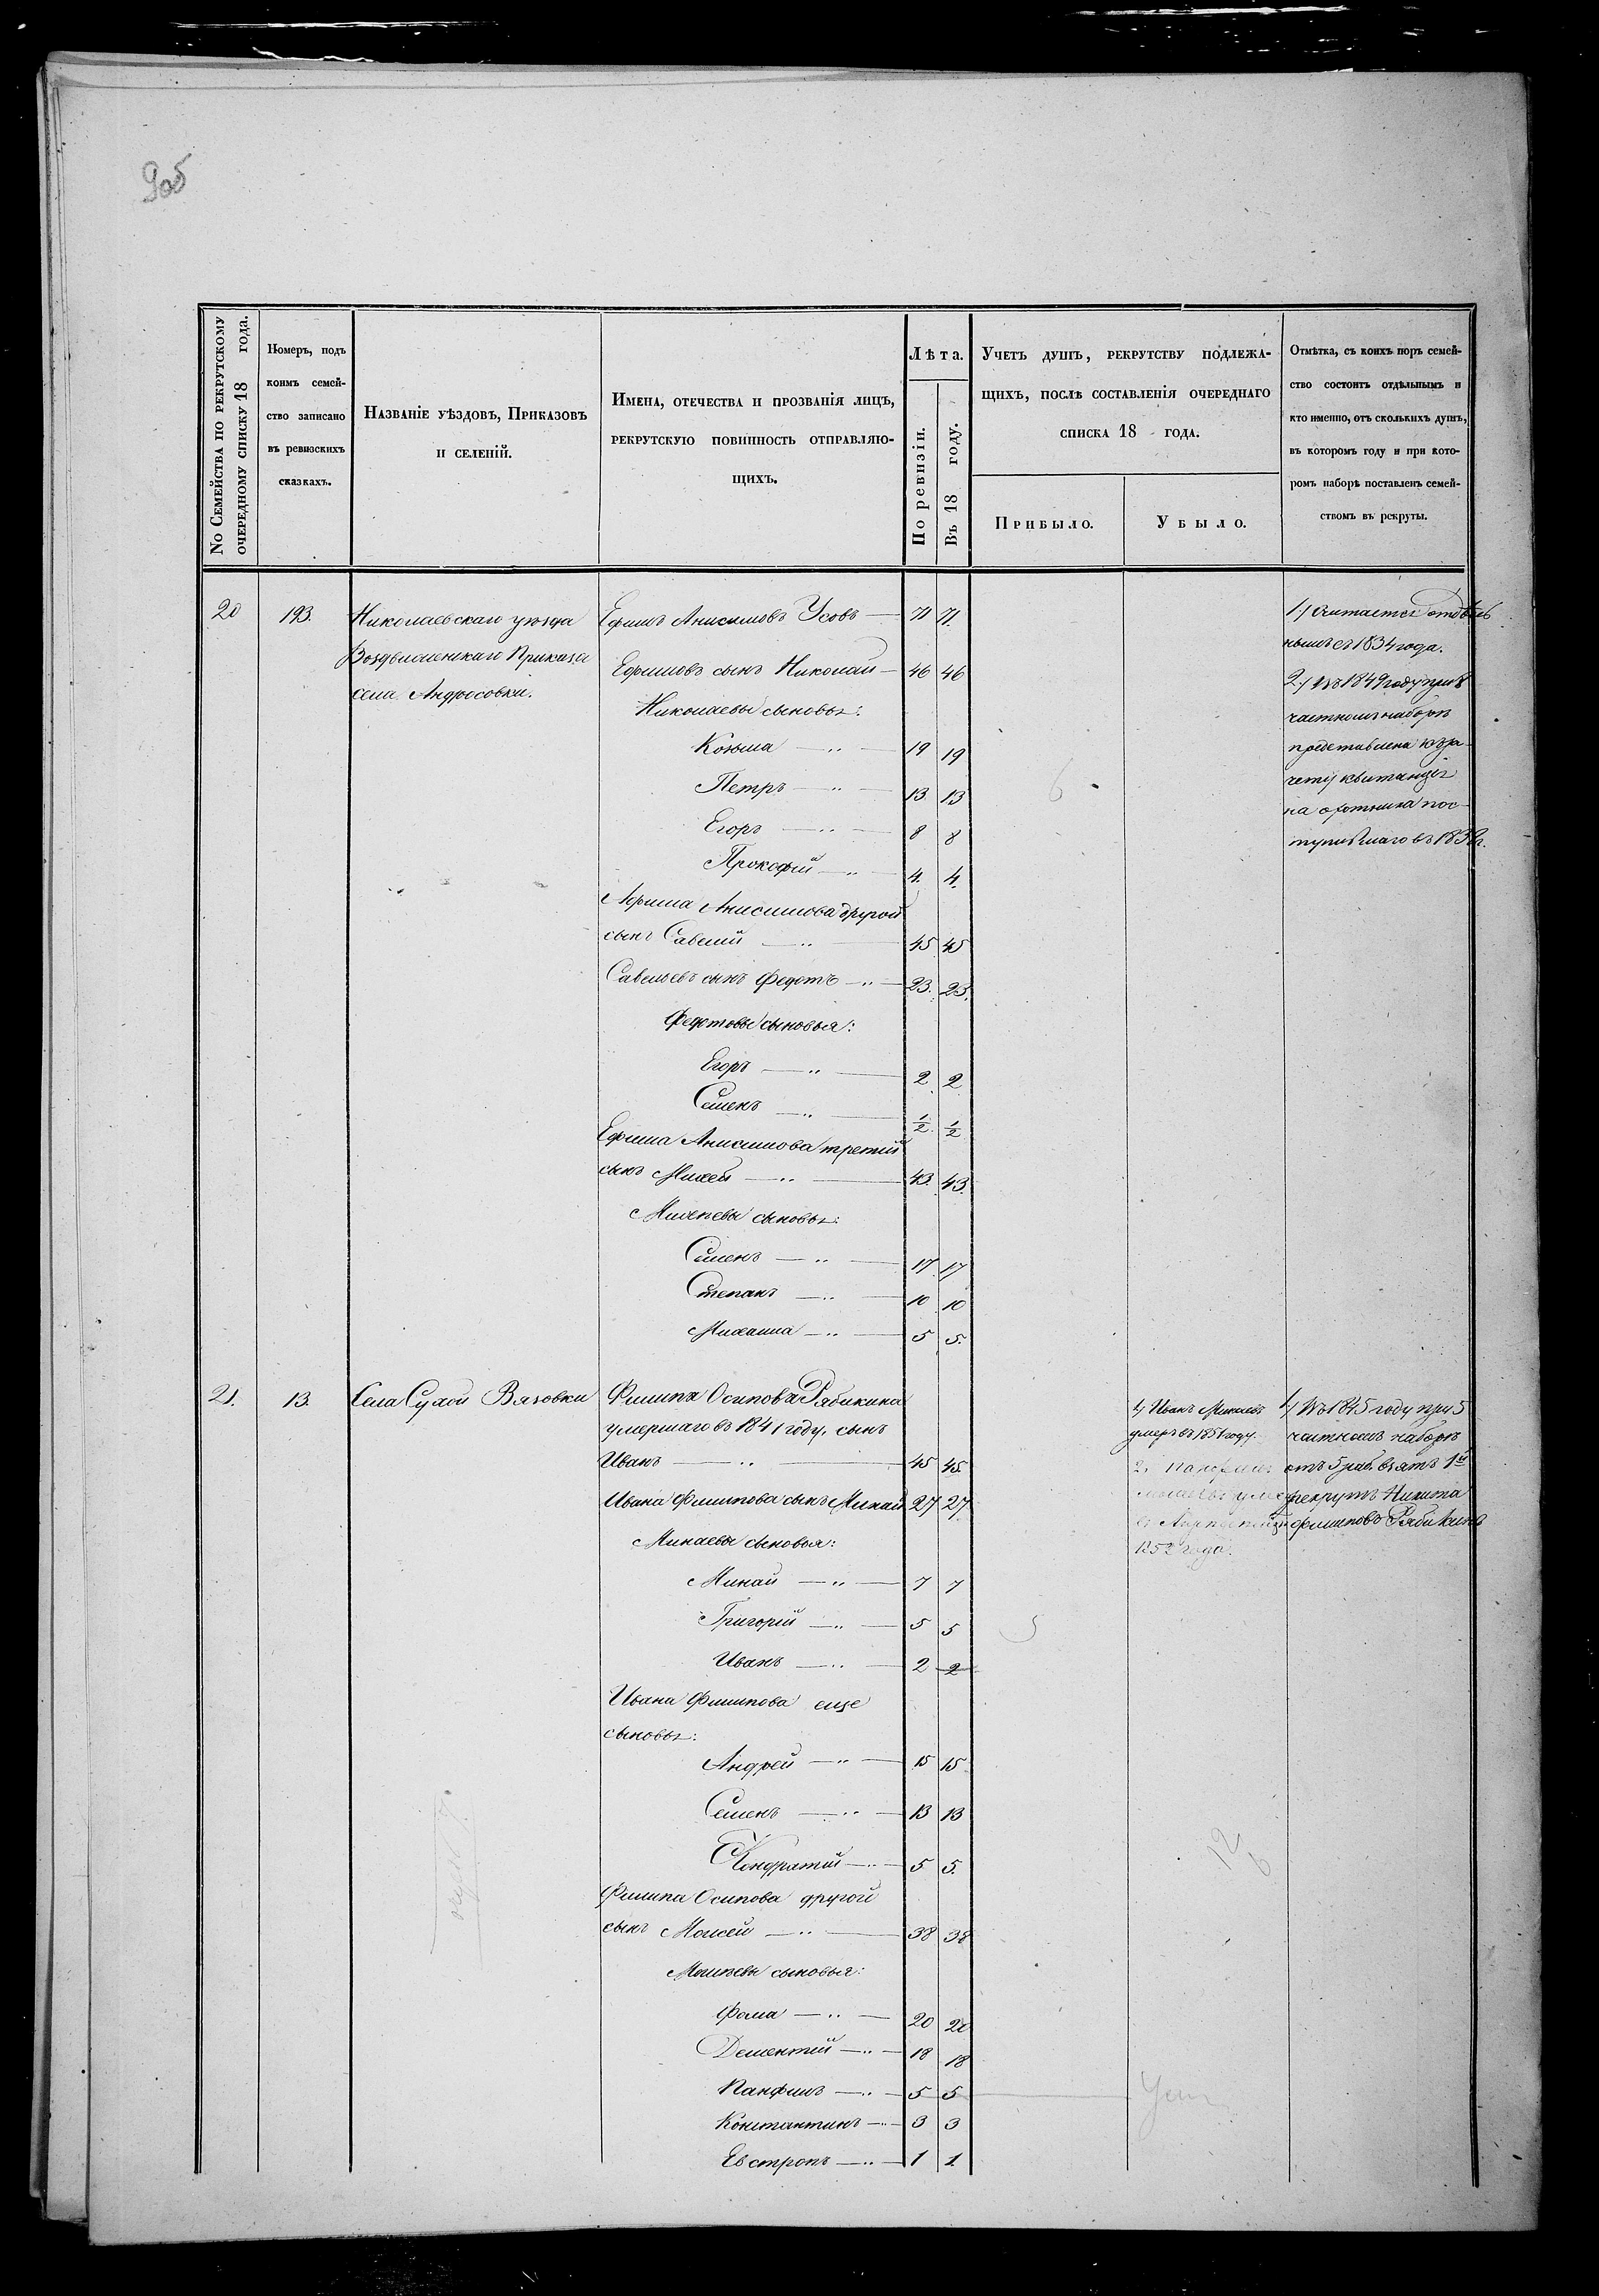 905
No Семейства по рекрутскому
очередному списку 18 года.
Номеръ, подъ
коимъ семей-
ство записано
въ ревизскихъ
сказкахъ.
Названіе уѣздовъ, Приказовъ
и селеній.
Имена, отечества и прозванія лицъ,
рекрутскую повинность отправляю-
щихъ.
Лѣта.
По ревизіи.
Въ 18 году.
Учетъ душъ, рекрутству подлежа-
щихъ, послѣ составленія очереднаго
списка 18 года.
Прибыло.
Убыло.
Отмѣтка, съ коихъ поръ семей-
ство состоитъ отдѣльнымъ и
кто именно, отъ сколькихъ душъ,
въ которомъ году и при кото-
ромъ наборѣ поставленъ семей-
ствомъ въ рекруты.
20 193. Николаевскаго уѣзда
Воздвиженскаго Приказа
села Андросовки.
Ефимъ Анисимовъ Усовъ — 71 71.
Ефимовъ сынъ Николай — 46 46
Николаевы сыновья:
Козьма — 19 19
Петръ — 13. 13
Егоръ — 8 8
Прокофій — 4. 4.
Ефима Анисимова другой
сынъ Савелій — 45 45
Савельевъ сынъ Федотъ — 23. 23.
Федотовы сыновья:
Егоръ — 2 2
Семенъ — 1/2. 1/2
Ефима Анисимова третій
сынъ Михей — 43. 43.
Михеевы сыновья:
Семенъ — 17 17
Степанъ — 10 10
Михаила — 5 5.
6
1) Считается отдѣль
нымъ съ 1834 года.
2) Въ 1849 году при 8
частномъ наборѣ
представлена къ за-
чету квитанція
на охотника пос-
тупившаго въ 183
21. 13. Села Сухой Вязовки
Филипа Осипова Рябикина
умершаго въ 1841 году, сынъ
Иванъ — 45 45.
Ивана Филипова сынъ Минай 27 27
Минаевы сыновья:
Минай — 7 7
Григорій — 5 5
Иванъ — 2 2
Ивана Филипова еще
сыновья:
Андрей — 15 15
Семенъ — 13 13
Кондратій — 5 5.
Филипа Осипова другой
сынъ Моисей — 38 38
Моисеевы сыновья:
Фома — 20 20
Дементій — 18 18
Панфилъ — 5 5
Константинъ — 3 3
Евстропъ — 1 1
5
1) Иванъ Минаевъ
умеръ въ 1851 году.
2) Панфилъ
1852 года.
12
6
1) Въ 1845 году при 5
частномъ наборѣ
отъ 5 раб. взятъ 1й
рекрутъ Никита
Филиповъ Рябикинъ